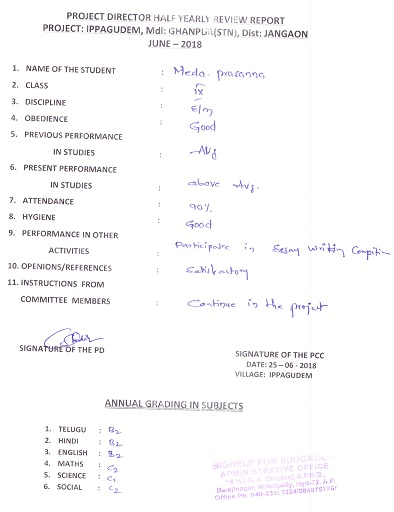 PROJECT DIRECTOR HALF YEARLY REVIEW REPORT
PROJECT: IPPAGUDEM, Mdl: GHANPUR(STN), Dist: JANGAON
JUNE – 2018
1. NAME OF THE STUDENT : Meda. prasanna
2. CLASS : IX
3. DISCIPLINE : E/M
4. OBEDIENCE : Good
5. PREVIOUS PERFORMANCE
IN STUDIES : Avg
6. PRESENT PERFORMANCE
IN STUDIES : above Avg.
7. ATTENDANCE : 90%
8. HYGIENE : Good
9. PERFORMANCE IN OTHER
ACTIVITIES : Participate in Essay Writing
10. OPENIONS/REFERENCES : Satisfactory
11. INSTRUCTIONS FROM
COMMITTEE MEMBERS : Continue in the project
SIGNATURE OF THE PD
SIGNATURE OF THE PCC
DATE: 25 – 06 - 2018
VILLAGE: IPPAGUDEM
ANNUAL GRADING IN SUBJECTS
1. TELUGU : B2
2. HINDI : B2
3. ENGLISH : B2
4. MATHS : C2
5. SCIENCE : C1
6. SOCIAL : C2
BIGHELP FOR EDUCATION
ADMINISTRATIVE OFFICE